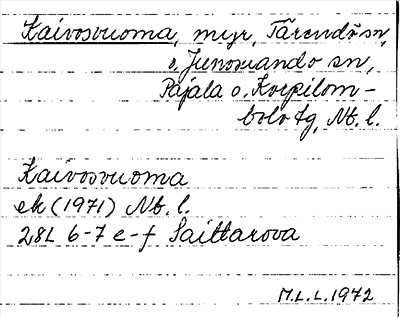 Kaivosvuoma, myr, Tärendö sn,
o. Junosuando sn,
Pajala o. Korpilom-
bolo tg, Nb. l.
Kaivosvuoma
ek (1971) Nb. l.
28L 6-7 e-f Saittarova
M.L.L. 1972